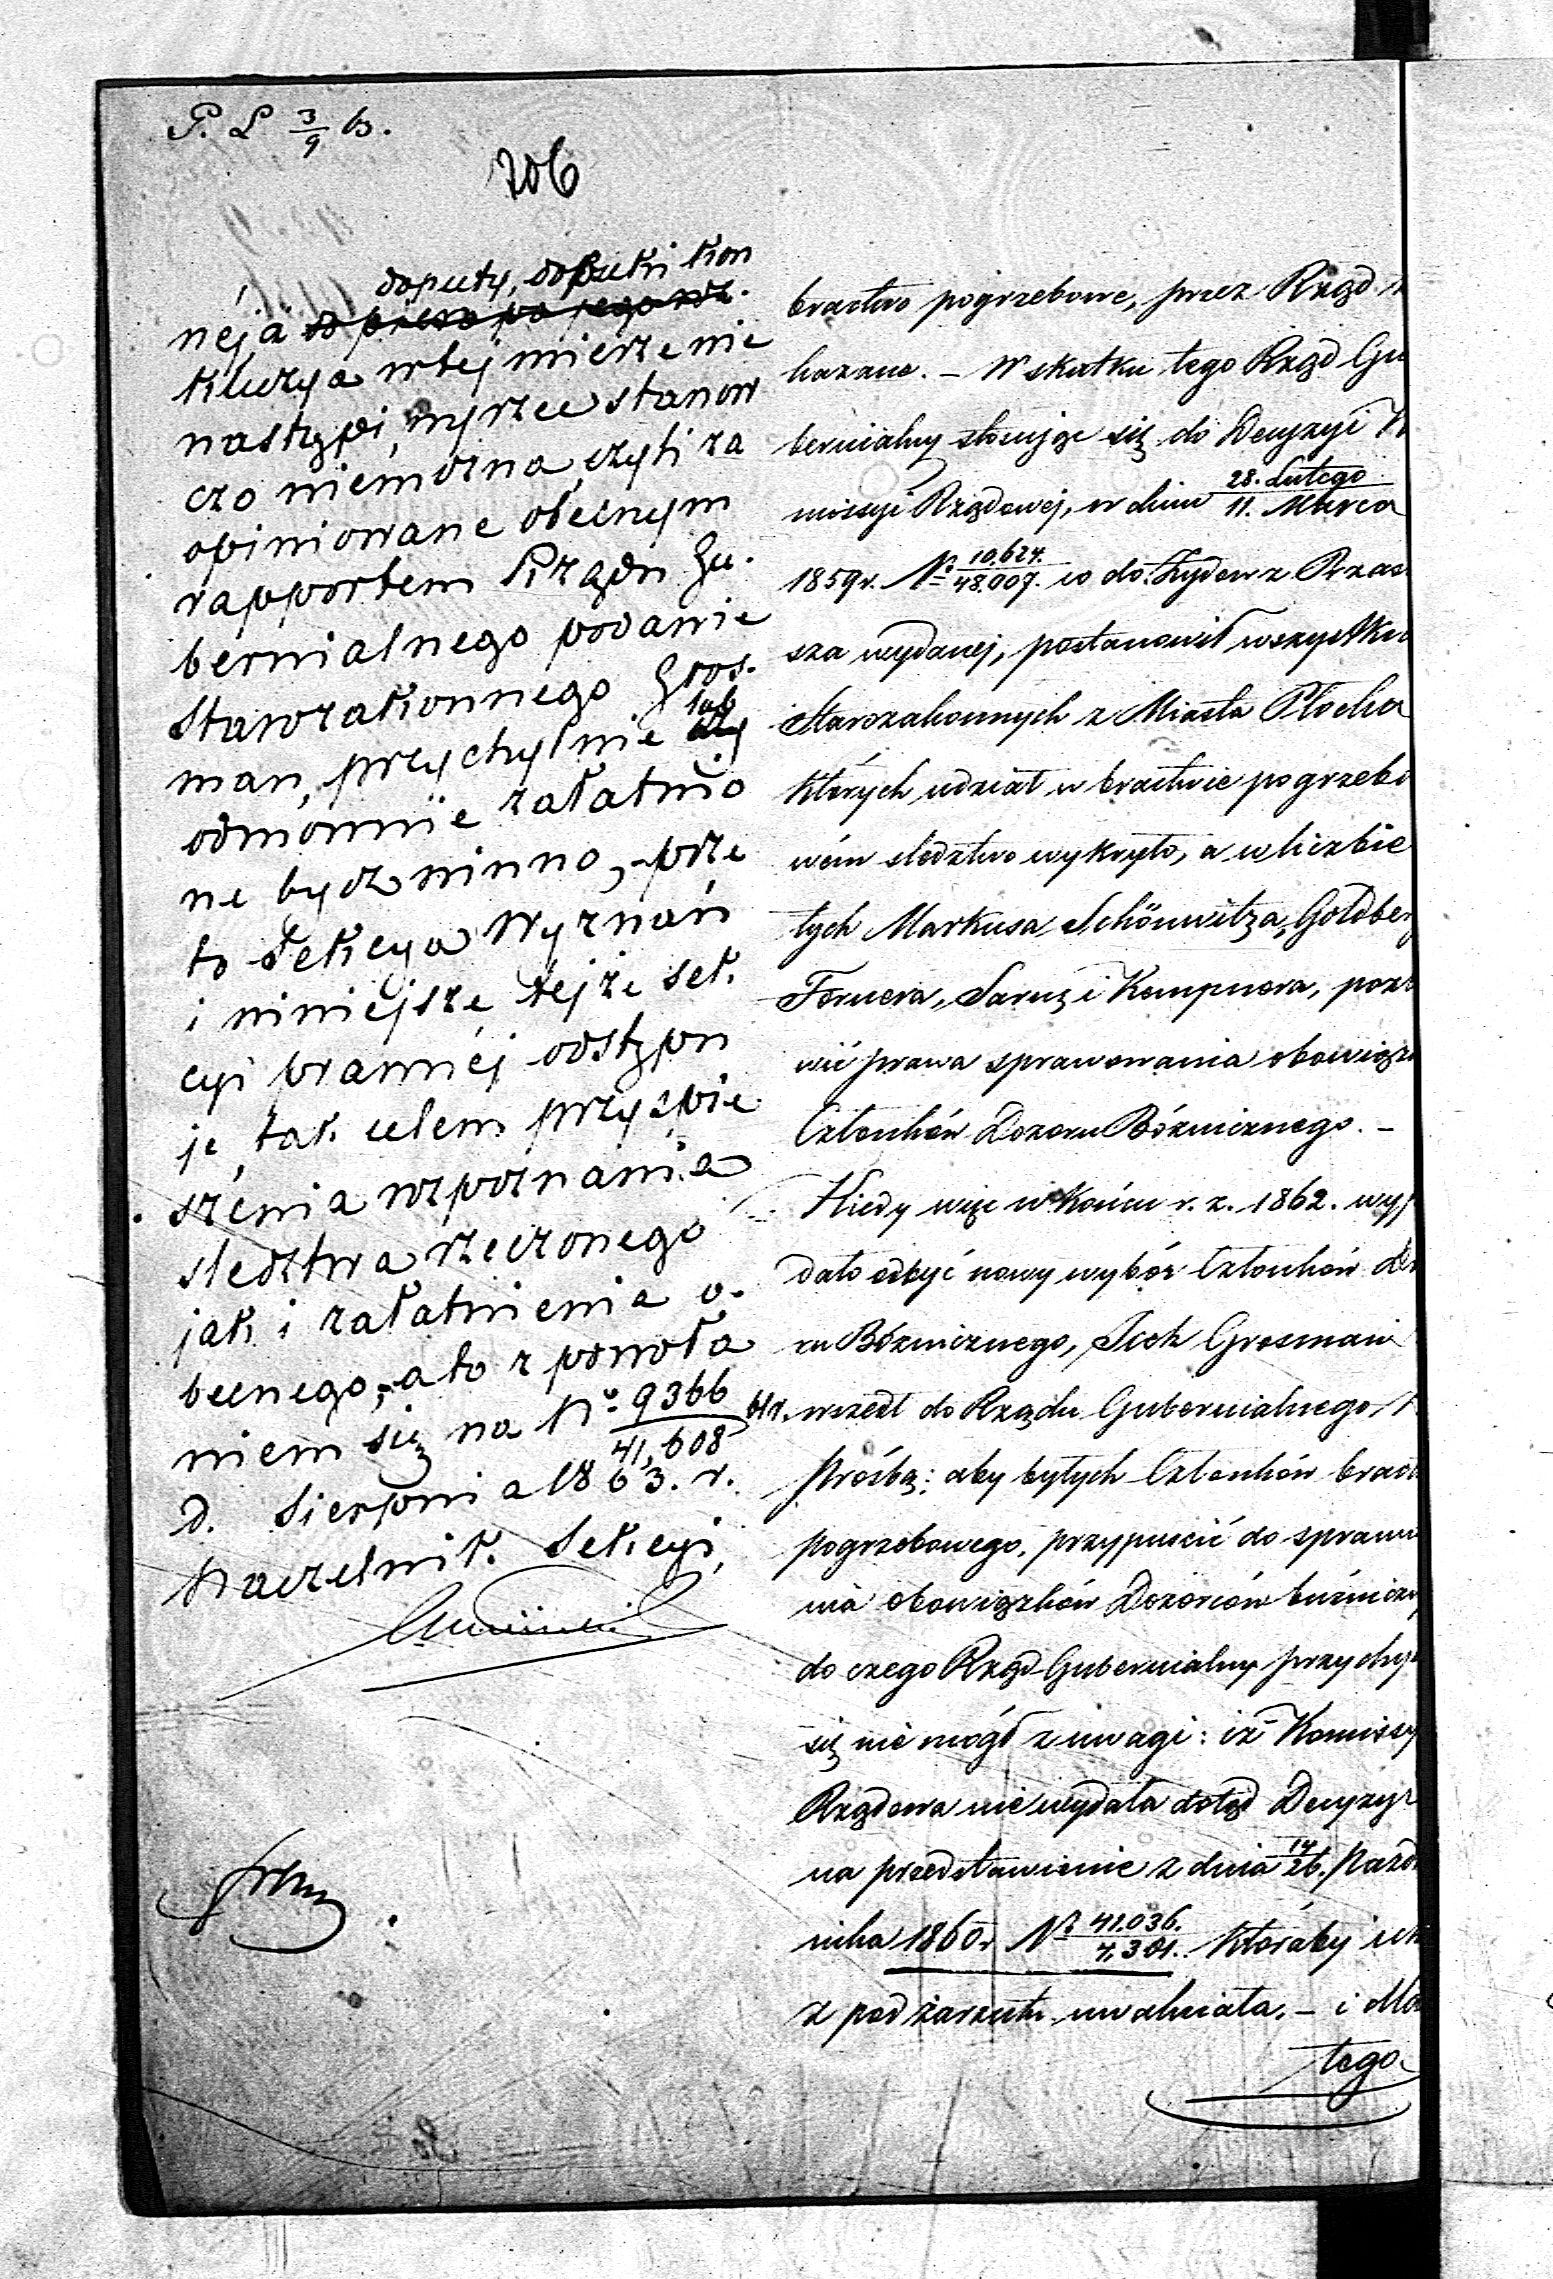 P. L 3/9 63.
206
doputy, dopuki kon
néja
kluzya w tej mierze nie
nastąpi, wyrzec stanow
czo niemożna, czyli za
opiniowane obecnym
rapportem Rządu Gu.
bernialnego podanie
Starozakonnego Gros.
man, przychylnie lub
odmownie załatwio
ne bydź winno, prze
to Sekcya Wyznań
i niniejsze tejże Sek.
cyi prawnéj odstępu
je, tak celem przyspie
szenia rozpoznania
śledztwa rzeczonego
jak i załatwienia o.
becnego, a to z powoła
niem się na No 9366/41,608 
d. Sierpnia 1863. r.
Naczelnik Sekcyi,
bractwo pogrzebowe, przez Rząd
kazane. – W skutku tego Rząd Gu
bernialny stosując się do Decyzyi
missyi Rządowej, w dniu 28. Lutego/11. Marca
1859 r. No 10,624./48.007. co do Żydów z Przas
sza wydanej, postanowił wszystkich
Starozakonnych z Miasta Płocka
których udział w bractwie pogrzebo
wém śledztwo wykryło, a w liczbie
tych Markusa Schönwitza, Goldber
Fernera, Sarnę i Kempnera, pozb
wić prawa sprawowania obowiązk
Członków Dozoru Bóżnicznego. –
Kiedy więc w końcu r. z. 1862. wyp
dało odbyć nowy wybór Członków Do
ru Bóżnicznego, Icek Grosman
wszedł do Rządu Gubernialnego
prośbą: aby byłych Członków brac
pogrzebowego, przypuścić do sprawo
nia obowiązków Dozorców bużniczn
do czego Rząd Gubernialny przychyl
się nie mógł z uwagi: iż Komissy
Rządowa nie wydała dotąd Decyzyi
na przedstawienie z dnia 14/26. Paźd
nika 1860 r. No 41.036./4,301. któraby ich
z pod zarzutu uwalniała. – i dla
tego